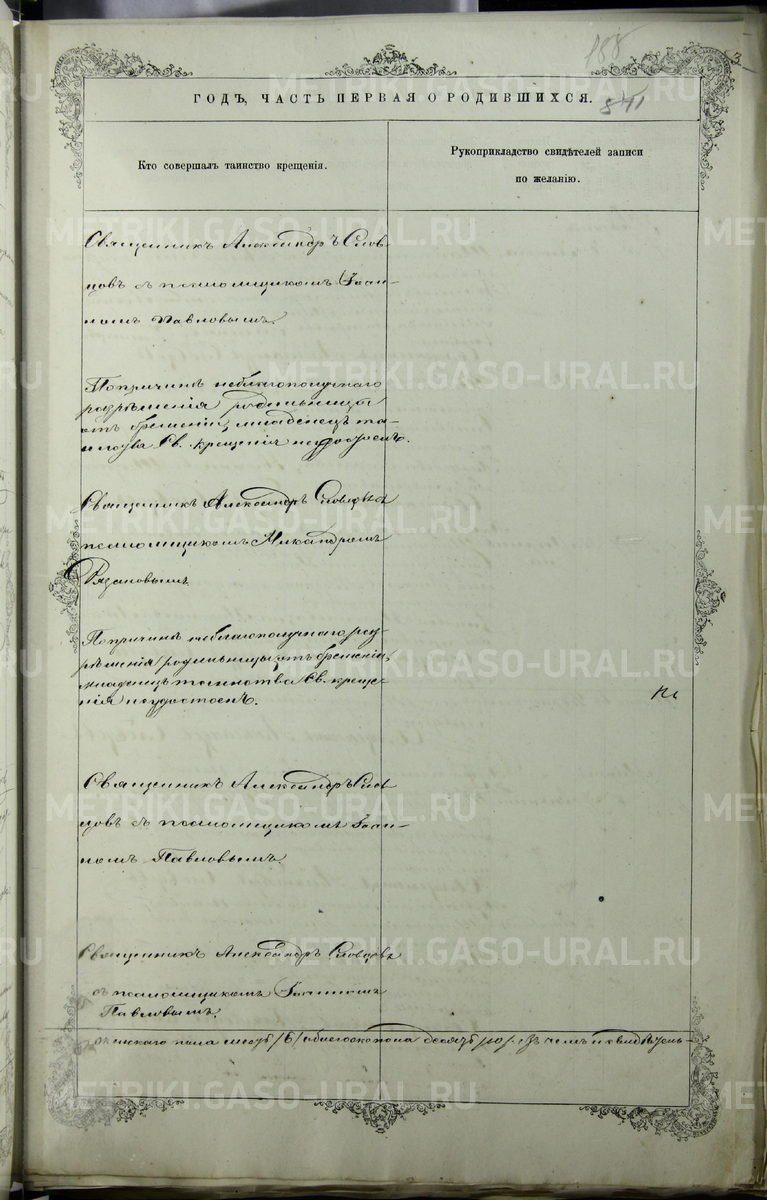 188
3
ГОДЪ, ЧАСТЬ ПЕРВАЯ О РОДИВШИХСЯ.
Кто совершалъ таинство крещенія.
Рукоприкладство свидѣтелей записи
по желанію.
Священникъ Александръ Слов-
цовъ съ псаломщикомъ Іоан-
номъ Павловымъ.
По причинѣ неблагополучнаго
разрѣшенія родильницы
отъ бремени, младенецъ та-
инства Св. крещенія неудостоенъ.
Священникъ Александръ Словцовъ
псаломщикомъ Никандромъ
Рязановымъ
По причинѣ неблагополучнаго раз-
рѣшенія родильницы отъ бремени,
младенецъ таинства Св. креще-
нія неудостоенъ.
Священникъ Александръ Слов
цовъ съ псаломщикомъ Іоан-
номъ Павловымъ.
Священникъ Александръ Словцовъ
съ псаломщикомъ Іоанномъ
Павловымъ.
женскаго пола шесть /6/ обоего пола десять /10/. Въ чемъ и свидѣтель-
METRIKI.GASO-URAL.RU